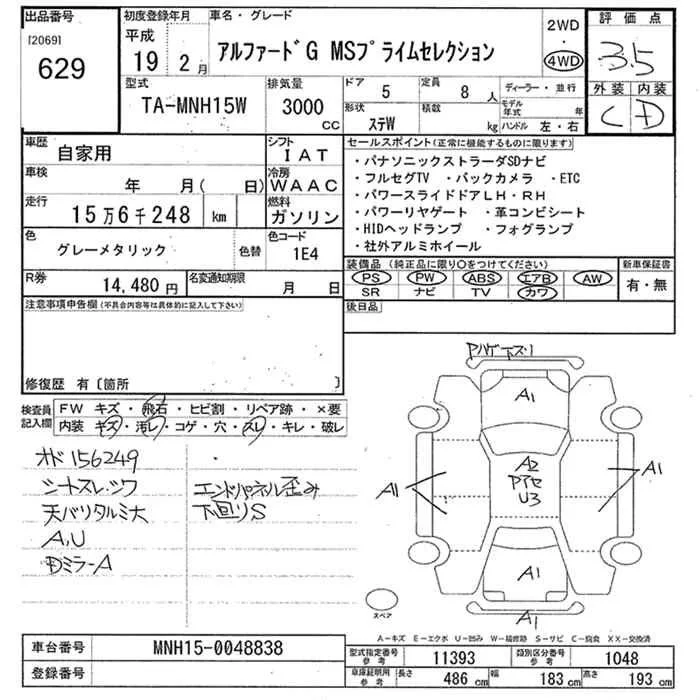 出品番号
[2069]
629
初度登録年月
平成
19 2月
車名・グレード
アルファードG MSプライムセレクション
2WD
・
4WD
評価点
3.5
外装 内装
C D
型式
TA-MNH15W
排気量
3000
CC
ドア
5
定員
8人
ディーラー・並行
形状
ステW
積載
kg
モデル年式 年
ハンドル 左・右
車歴
自家用
シフト
IAT
車検
年 月( 日)
冷房
WAAC
走行
15万6千248 km
燃料
ガソリン
色
グレーメタリック
色替
色コード
1E4
R券
14,480円
名変通知期限
月 日
セールスポイント(正常に機能するものに限ります)
・パナソニックストラーダSDナビ
・フルセグTV ・バックカメラ ・ETC
・パワースライドドアLH・RH
・パワーリヤゲート ・革コンビシート
・HIDヘッドランプ ・フォグランプ
・社外アルミホイール
装備品(純正品に限り○をつけてください)
PS PW ABS エアB AW
SR ナビ TV カワ
新車保証書
有・無
後日品
注意事項申告欄(不具合内容等は具体的に記入して下さい)
修復歴 有〔箇所 〕
検査員
記入欄
FW キズ・飛石・ヒビ割・リペア跡・×要
内装 キズ・汚レ・コゲ・穴・スレ・キレ・破レ
オド156249
シートスレ・シワ
天バリタルミ大
A,U
Dミラ-A
エンドパネル歪み
下回りS
A1
A2
U3
A1
A1
A1
A1
スペア
A-キズ E-エクボ U-凹み W-補修跡 S-サビ C-腐食 XX-交換済
車台番号
MNH15-0048838
登録番号
型式指定番号
参考
11393
類別区分番号
参考
1048
車庫証明用
参考
長さ
486 cm
幅
183 cm
高さ
193 cm